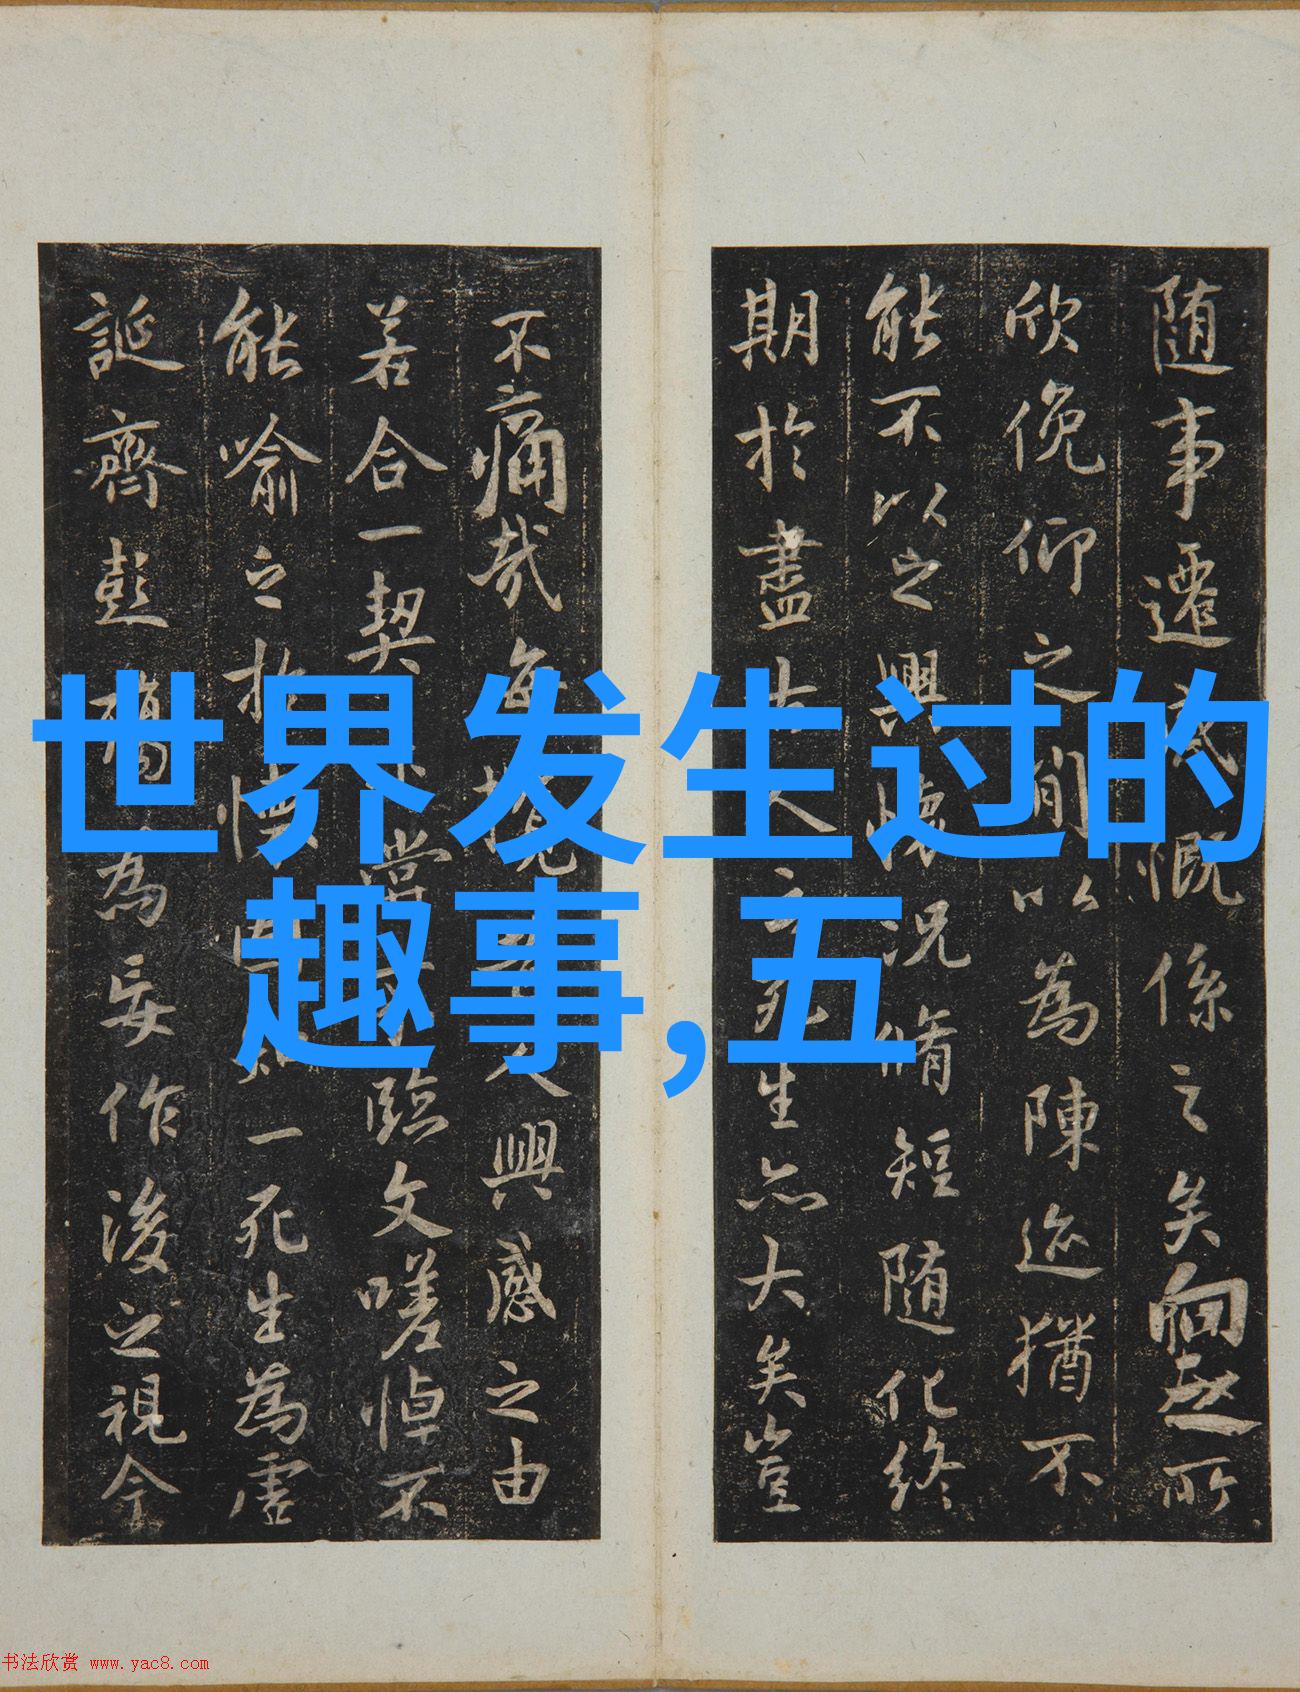 世界发生过的
趣事,五
随事遷感慨係之矣向之所
欣俛仰之間以為陳迹猶不
能不以之興懷況脩短随化終
期於盡古人云死生亦大矣豈
不痛哉每攬昔人興感之由
若合一契未嘗不臨文嗟悼不
能喻之於懷固知一死生為虛
誕齊彭殤為妄作後之視今
书法欣赏 www.yac8.com